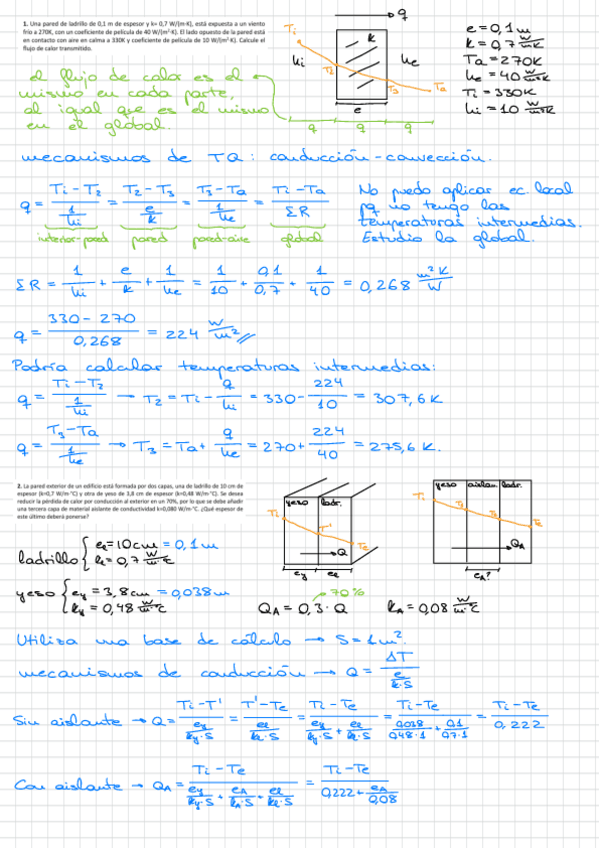 1. Una pared de ladrillo de 0,1 m de espesor y k= 0,7 W/(m·K), está expuesta a un viento
frío a 270K, con un coeficiente de película de 40 W/(m²·K). El lado opuesto de la pared está
en contacto con aire en calma a 330K y coeficiente de película de 10 W/(m²·K). Calcule el
flujo de calor transmitido.
q
Ti
hi
T2
T3
he
Ta
e
q q q
e = 0,1 m
k = 0,7 W/mK
Ta = 270K
he = 40 W/m²K
Ti = 330K
hi = 10 W/m²K
el flujo de calor es el
mismo en cada parte,
al igual que es el mismo
en el global.
mecanismos de TQ: conducción-convección.
q = (Ti-T2)/(1/hi) = (T2-T3)/(e/k) = (T3-Ta)/(1/he) = (Ti-Ta)/ΣR
interior-pared pared pared-aire global
No puedo aplicar ec. local
pq no tengo las
temperaturas intermedias.
Estudio la global.
ΣR = 1/hi + e/k + 1/he = 1/10 + 0,1/0,7 + 1/40 = 0,268 m²K/W
q = (330-270)/0,268 = 224 W/m²
Podría calcular temperaturas intermedias:
q = (Ti-T2)/(1/hi) → T2 = Ti - q/hi = 330 - 224/10 = 307,6 K
q = (T3-Ta)/(1/he) → T3 = Ta + q/he = 270 + 224/40 = 275,6 K.
2. La pared exterior de un edificio está formada por dos capas, una de ladrillo de 10 cm de
espesor (k=0,7 W/m·°C) y otra de yeso de 3,8 cm de espesor (k=0,48 W/m·°C). Se desea
reducir la pérdida de calor por conducción al exterior en un 70%, por lo que se debe añadir
una tercera capa de material aislante de conductividad k=0,080 W/m·°C. ¿Qué espesor de
este último deberá ponerse?
yeso ladr.
Ti
T'
Te
Q
ey el
yeso aislan. ladr.
Ti
Te
QA
eA?
ladrillo { el = 10cm = 0,1 m
kl = 0,7 W/m°C
yeso { ey = 3,8cm = 0,038m
ky = 0,48 W/m°C
70%
QA = 0,3 · Q
kA = 0,08 W/m°C
Utiliza una base de cálculo → S = 1m².
mecanismos de conducción → Q = ΔT/(e/k·S)
Sin aislante → Q = (Ti-T')/(ey/ky·S) = (T'-Te)/(el/kl·S) = (Ti-Te)/(ey/ky·S + el/kl·S) = (Ti-Te)/(0,038/0,48·1 + 0,1/0,7·1) = (Ti-Te)/0,222
Con aislante → QA = (Ti-Te)/(ey/ky·S + eA/kA·S + el/kl·S) = (Ti-Te)/(0,222 + eA/0,08)